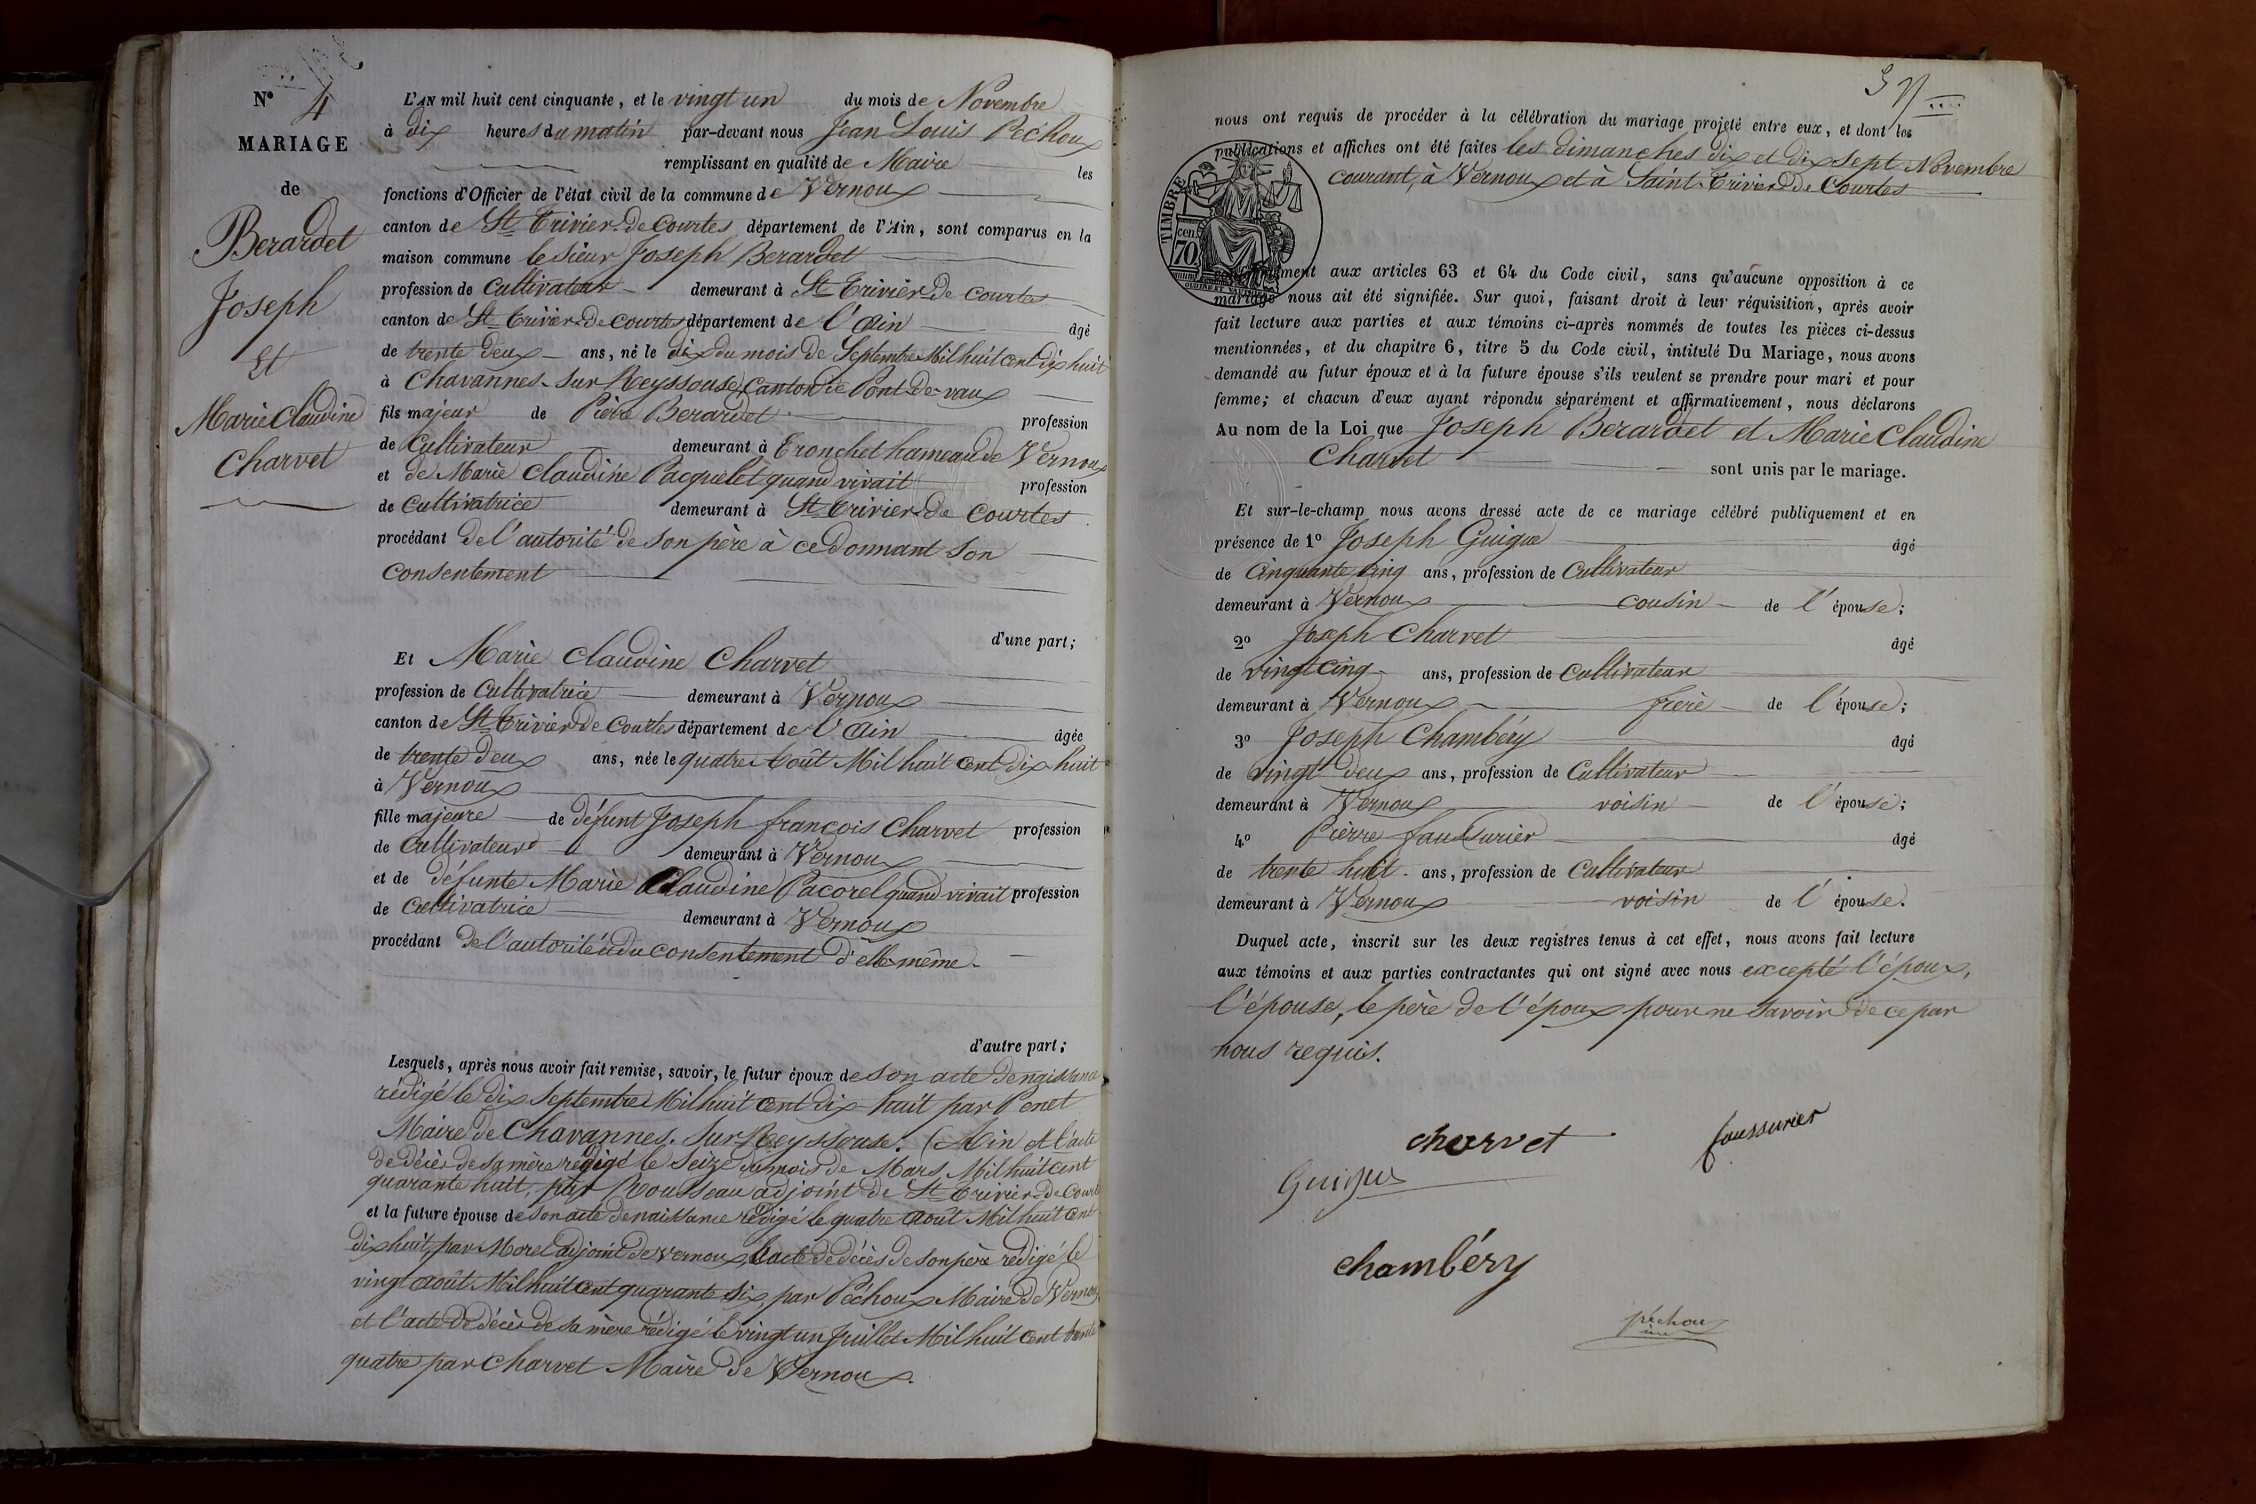 N° 4
MARIAGE
de
Berardet
Joseph
Et
Marie Claudine
Charvet
L'AN mil huit cent cinquante, et le vingt un du mois de Novembre
à dix heures du matin par-devant nous Jean Louis Péchoux
remplissant en qualité de Maire les
fonctions d'Officier de l'état civil de la commune de Vernoux
canton de St Trivier-de Courtes, département de l'Ain, sont comparus en la
maison commune le sieur Joseph Berardet
profession de Cultivateur demeurant à St Trivier-de Courtes
canton de St Trivier-de Courtes département de l'Ain âgé
de trente deux ans, né le dix du mois de Septembre Mil huit cent dix huit
à Chavannes-Sur Reyssouse, canton de Pont-de-vaux
fils majeur de Pierre Berardet profession
de Cultivateur demeurant à Tronchet hameau de Vernoux
et de Marie Claudine Pacquelet quand vivait profession
de Cultivatrice demeurant à St Trivier-de Courtes
procédant de l'autorité de son père à ce donnant son
consentement
d'une part;
Et Marie Claudine Charvet
profession de Cultivatrice demeurant à Vernoux
canton de St Trivier-de Courtes département de l'Ain âgée
de trente deux ans, née le quatre Août Mil huit cent dix-huit
à Vernoux
fille majeure de défunt Joseph françois Charvet profession
de Cultivateur demeurant à Vernoux
et de défunte Marie Claudine Pacorel quand vivait profession
de Cultivatrice demeurant à Vernoux
procédant de l'autorité & du consentement d'elle-même.
d'autre part;
Lesquels, après nous avoir fait remise, savoir, le futur époux de son acte de naissance
rédigé le dix Septembre Mil huit cent dix-huit par Penet
Maire de Chavannes-Sur-Reyssouse. (Ain et l'acte
de décès de sa mère rédigé le Seize du mois de Mars Mil huit cent
quarante huit, par Rousseau adjoint de St Trivier-de Courtes
et la future épouse de son acte de naissance rédigé le quatre Août Mil huit cent
dix huit, par Morel adjoint de Vernoux, l'acte de décès de son père rédigé le
vingt Août Mil huit cent quarante six par Péchoux Maire de Vernoux
et l'acte de décès de sa mère rédigé le vingt un Juillet Mil huit cent trente
quatre par Charvet Maire de Vernoux.
nous ont requis de procéder à la célébration du mariage projeté entre eux, et dont les
publications et affiches ont été faites les dimanches dix et dix sept Novembre
courant, à Vernoux et à Saint-Trivier-de Courtes
TIMBRE
70 cen.
conformément aux articles 63 et 64 du Code civil, sans qu'aucune opposition à ce
mariage nous ait été signifiée. Sur quoi, faisant droit à leur réquisition, après avoir
fait lecture aux parties et aux témoins ci-après nommés de toutes les pièces ci-dessus
mentionnées, et du chapitre 6, titre 5 du Code civil, intitulé Du Mariage, nous avons
demandé au futur époux et à la future épouse s'ils veulent se prendre pour mari et pour
femme; et chacun d'eux ayant répondu séparément et affirmativement, nous déclarons
Au nom de la Loi que Joseph Berardet et Marie Claudine
Charvet sont unis par le mariage.
Et sur-le-champ nous avons dressé acte de ce mariage célébré publiquement et en
présence de 1° Joseph Guigue âgé
de Cinquante cinq ans, profession de Cultivateur
demeurant à Vernoux cousin de l'épouse;
2° Joseph Charvet âgé
de vingt cinq ans, profession de Cultivateur
demeurant à Vernoux frère de l'épouse;
3° Joseph Chambéry âgé
de vingt deux ans, profession de Cultivateur
demeurant à Vernoux voisin de l'épouse;
4° Pierre faussurier âgé
de trente huit ans, profession de Cultivateur
demeurant à Vernoux voisin de l'épouse.
Duquel acte, inscrit sur les deux registres tenus à cet effet, nous avons fait lecture
aux témoins et aux parties contractantes qui ont signé avec nous excepté l'époux,
l'épouse, le père de l'époux pour ne savoir de ce par
nous requis.
charvet
faussurier
Guigue
chambéry
péchoux